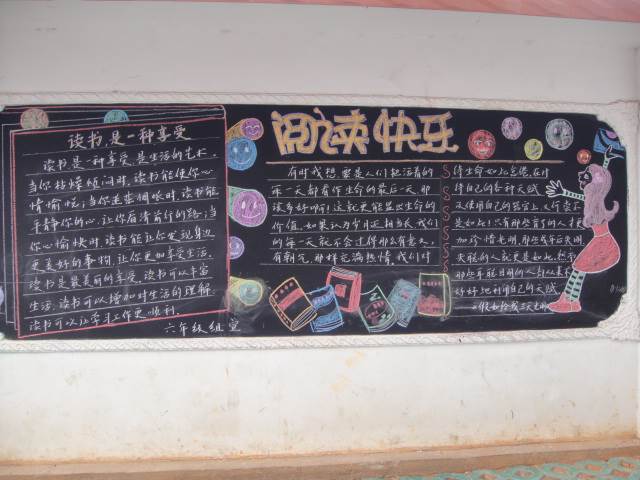 读书,是一种享受
读书是一种享受,是生活的艺术.
当你枯燥烦闷时,读书能使你心
情愉悦;当你迷茫惆怅时,读书能
平静你的心,让你看清前行的路;当
你心愉快时,读书能让你发现身边
更美好的事物,让你更加享受生活.
读书是最美丽的享受,读书可以丰富
生活,读书可以增加对生活的理解.
读书可以让学习工作更顺利.
六年级组宣
阅读快乐
有时我想,要是人们把活着的
每一天都看作生命的最后一天那
该多好啊!这就更能显出生命的
价值.如果认为岁月还相当长,我们
的每一天就不会过得那么有意义,
有朝气,那样充满热情.我们对
待生命
待自己的各种天赋
及使用自己的器官上,又何尝不
是如此!只有那些瞎了的人才更
加珍惜光明,那些成年后失明、
失聪的人就更是如此.然而
那些耳聪目明的人却从来不
好好地利用自己的天赋